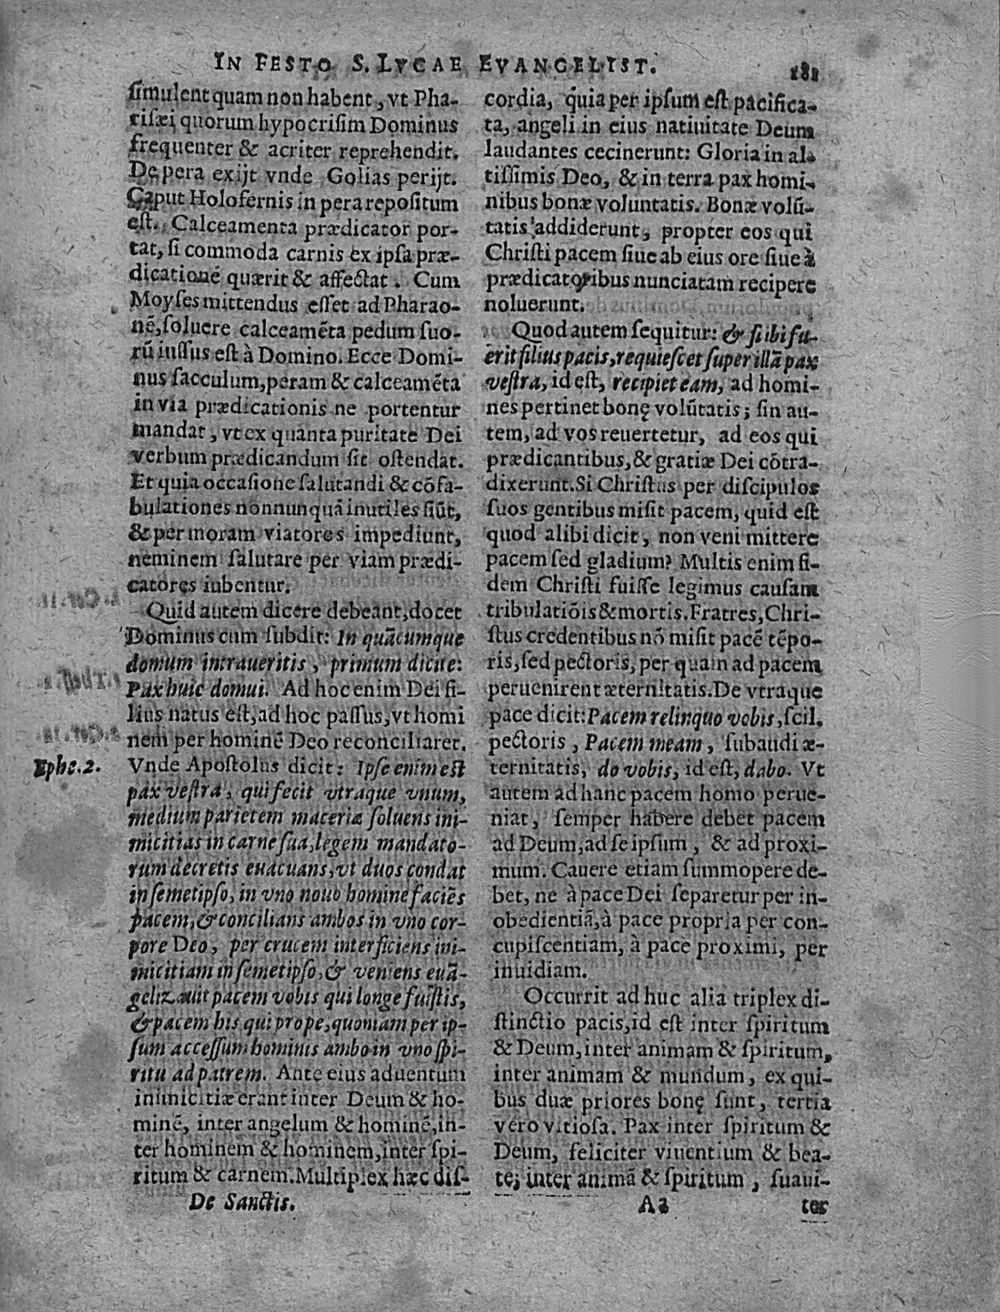 IN FESTO S. LVCAE EVANGELIST. 181
simulent quam non habent, vt Pha-
risæi quorum hypocrisim Dominus
frequenter & acriter reprehendit.
De pera exijt vnde Golias perijt.
Caput Holofernis in pera repositum
est. Calceamenta prædicator por-
tat, si commoda carnis ex ipsa præ-
dicationē quærit & affectat. Cum
Moyses mittendus esset ad Pharao-
nē, soluere calceamēta pedum suo-
rū iussus est à Domino. Ecce Domi-
nus sacculum, peram & calceamēta
in via prædicationis ne portentur
mandat, vt ex quanta puritate Dei
verbum prædicandum sit ostendat.
Et quia occasione salutandi & cōfa-
bulationes nonnunquā inutiles siūt,
& per moram viatores impediunt,
neminem salutare per viam prædi-
catores iubentur.
Quid autem dicere debeant, docet
Dominus cum subdit: In quācumque
domum intraueritis, primum dicite:
Pax huic domui. Ad hoc enim Dei fi-
lius natus est, ad hoc passus, vt homi
nem per hominē Deo reconciliaret.
Ephe. 2. Vnde Apostolus dicit: Ipse enim est
pax vestra, qui fecit vtraque vnum,
medium parietem maceriæ soluens ini-
micitias in carne sua, legem mandato-
rum decretis euacuans, vt duos condat
in semetipso, in vno nouo homine faciēs
pacem, & concilians ambos in vno cor-
pore Deo, per crucem interficiens ini-
micitiam in semetipso, & veniens euā-
gelizauit pacem vobis qui longe fuistis,
& pacem his qui prope, quoniam per ip-
sum accessum hominis ambo in vno spi-
ritu ad patrem. Ante eius aduentum
inimicitiæ erant inter Deum & ho-
minē, inter angelum & hominē, in-
ter hominem & hominem, inter spi-
ritum & carnem. Multiplex hæc dis-
De Sanctis.
cordia, quia per ipsum est pacifica-
ta, angeli in eius natiuitate Deum
laudantes cecinerunt: Gloria in al-
tissimis Deo, & in terra pax homi-
nibus bonæ voluntatis. Bonæ volū-
tatis addiderunt, propter eos qui
Christi pacem siue ab eius ore siue à
prædicatoribus nunciatam recipere
noluerunt.
Quod autem sequitur: & si ibi fu-
erit filius pacis, requiescet super illā pax
vestra, id est, recipiet eam, ad homi-
nes pertinet bonę volūtatis; sin au-
tem, ad vos reuertetur, ad eos qui
prædicantibus, & gratiæ Dei cōtra-
dixerunt. Si Christus per discipulos
suos gentibus misit pacem, quid est
quod alibi dicit, non veni mittere
pacem sed gladium? Multis enim fi-
dem Christi fuisse legimus causam
tribulatiōis & mortis. Fratres, Chri-
stus credentibus nō misit pacē tēpo-
ris, sed pectoris, per quam ad pacem
peruenirent æternitatis. De vtraque
pace dicit: Pacem relinquo vobis, scil.
pectoris, Pacem meam, subaudi æ-
ternitatis, do vobis, id est, dabo. Vt
autem ad hanc pacem homo perue-
niat, semper habere debet pacem
ad Deum, ad se ipsum, & ad proxi-
mum. Cauere etiam summopere de-
bet, ne à pace Dei separetur per in-
obedientiā, à pace propria per con-
cupiscentiam, à pace proximi, per
inuidiam.
Occurrit ad huc alia triplex di-
stinctio pacis, id est inter spiritum
& Deum, inter animam & spiritum,
inter animam & mundum, ex qui-
bus duæ priores bonę sunt, tertia
vero vitiosa. Pax inter spiritum &
Deum, feliciter viuentium & bea-
te; inter animā & spiritum, suaui-
Aa ter